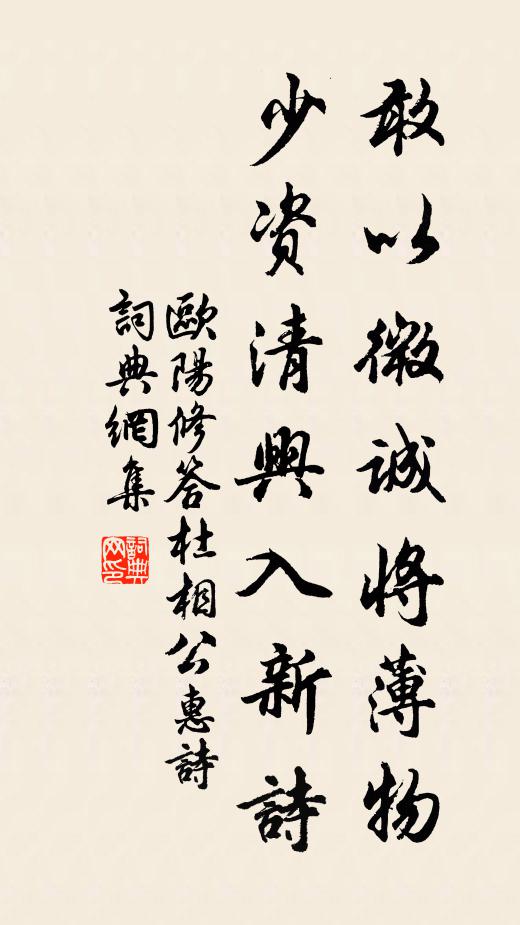 敢以微誠將薄物
少資清興入新詩
歐陽修答杜相公惠詩
詞典網集
詞典网印